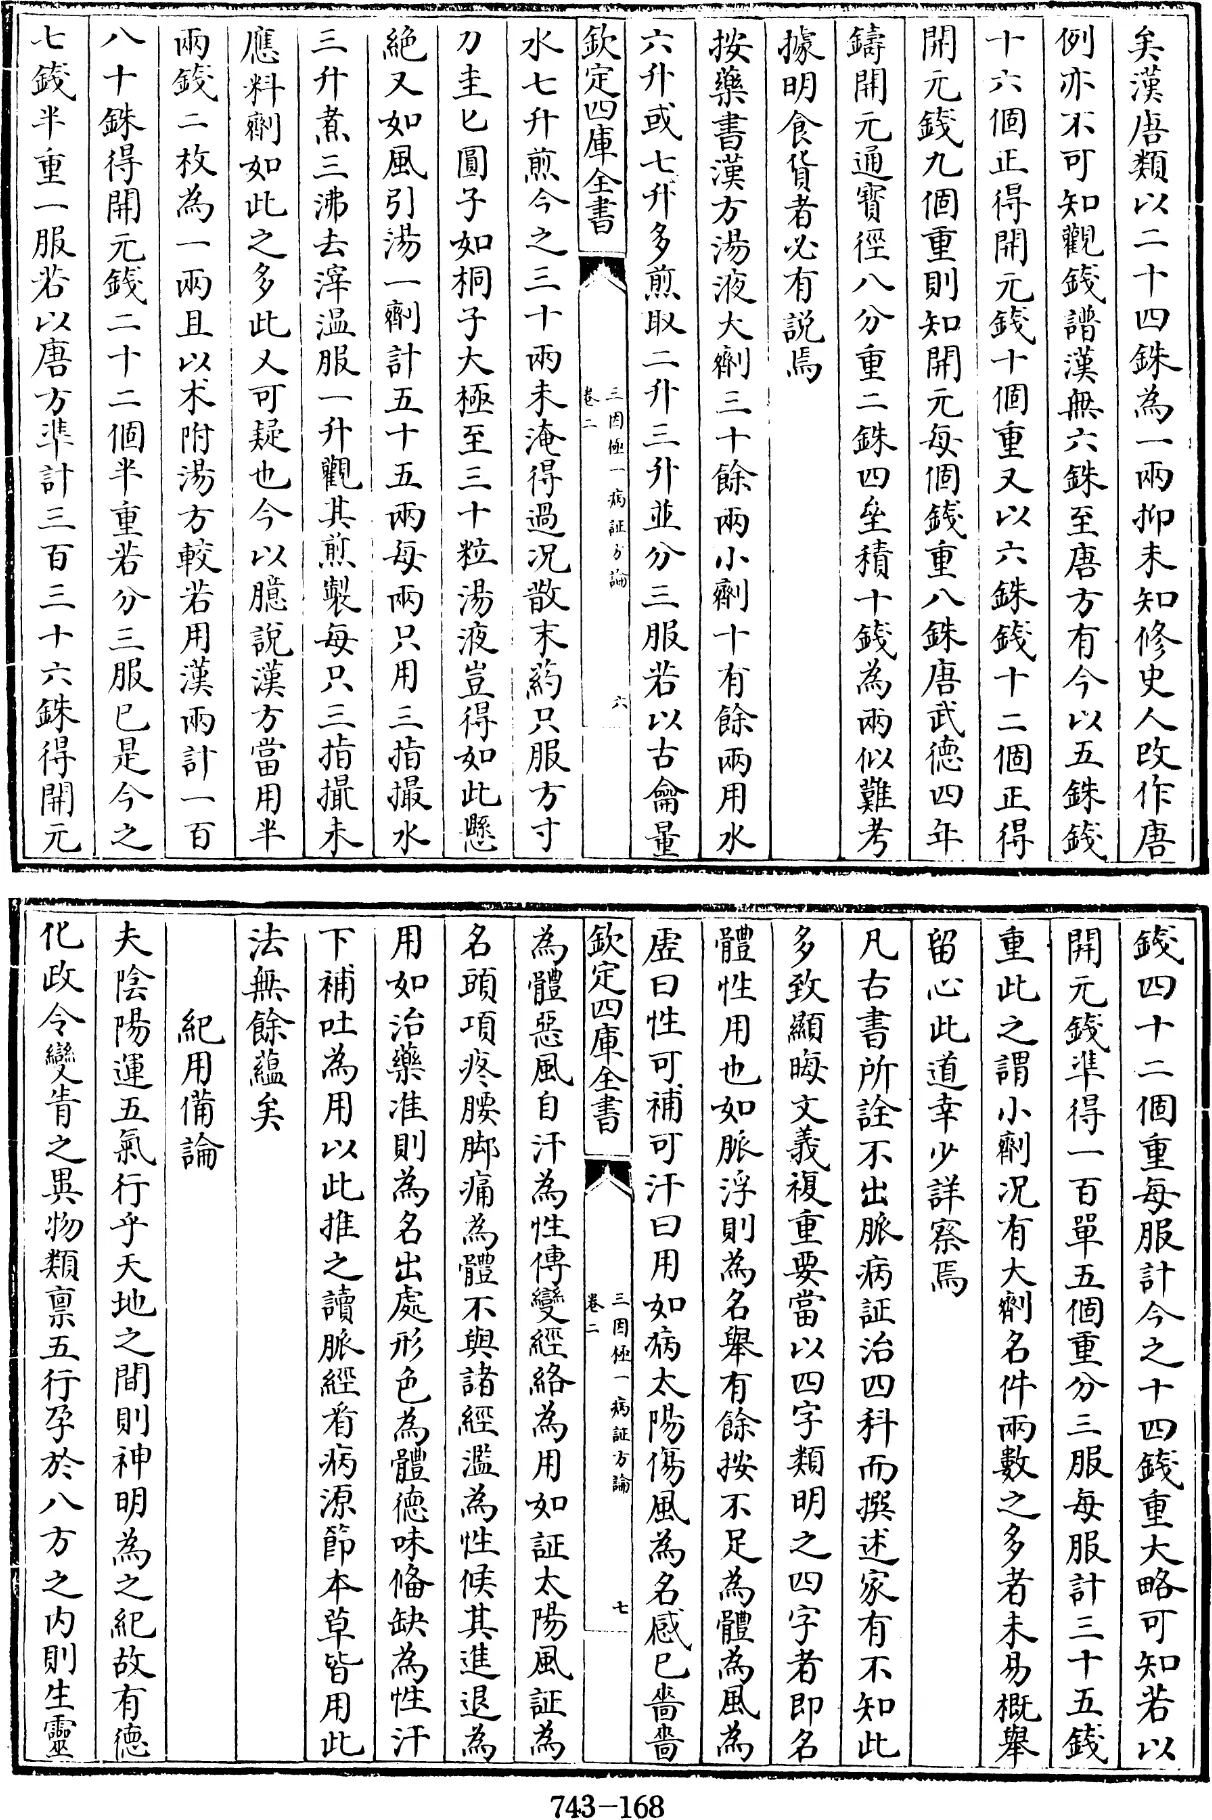 矣漢唐類以二十四銖為一兩抑未知修史人改作唐
例亦不可知觀錢譜漢無六銖至唐方有今以五銖錢
十六個正得開元錢十個重又以六銖錢十二個正得
開元錢九個重則知開元每個錢重八銖唐武德四年
鑄開元通寳徑八分重二銖四絫積十錢為兩似難考
據明食貨者必有説焉
按藥書漢方湯液大劑三十餘兩小劑十有餘兩用水
六升或七升多煎取二升三升並分三服若以古龠量
欽定四庫全書
三因極一病証方論
卷二
六
水七升煎今之三十兩未淹得過况散末藥只服方寸
刀圭匕圓子如桐子大極至三十粒湯液豈得如此懸
絶又如風引湯一劑計五十五兩每兩只用三指撮水
三升煮三沸去滓温服一升觀其煎製每只三指撮未
應料劑如此之多此又可疑也今以臆説漢方當用半
兩錢二枚為一兩且以术附湯方較若用漢兩計一百
八十銖得開元錢二十二個半重若分三服已是今之
七錢半重一服若以唐方凖計三百三十六銖得開元
錢四十二個重每服計今之十四錢重大略可知若以
開元錢凖得一百單五個重分三服每服計三十五錢
重此之謂小劑况有大劑名件兩數之多者未易概舉
留心此道幸少詳察焉
凡古書所詮不出脈病証治四科而撰述家有不知此
多致顯晦文義複重要當以四字類明之四字者即名
體性用也如脈浮則為名舉有餘按不足為體為風為
虚曰性可補可汗曰用如病太陽傷風為名感已嗇嗇
欽定四庫全書
三因極一病証方論
卷二
七
為體惡風自汗為性傳變經絡為用如証太陽風証為
名頭項疼腰脚痛為體不與諸經濫為性候其進退為
用如治藥准則為名出處形色為體德味備缺為性汗
下補吐為用以此推之讀脈經看病源節本草皆用此
法無餘蘊矣
紀用備論
夫陰陽運五氣行乎天地之間則神明為之紀故有德
化政令變眚之異物類禀五行孕於八方之内則生靈
743-168